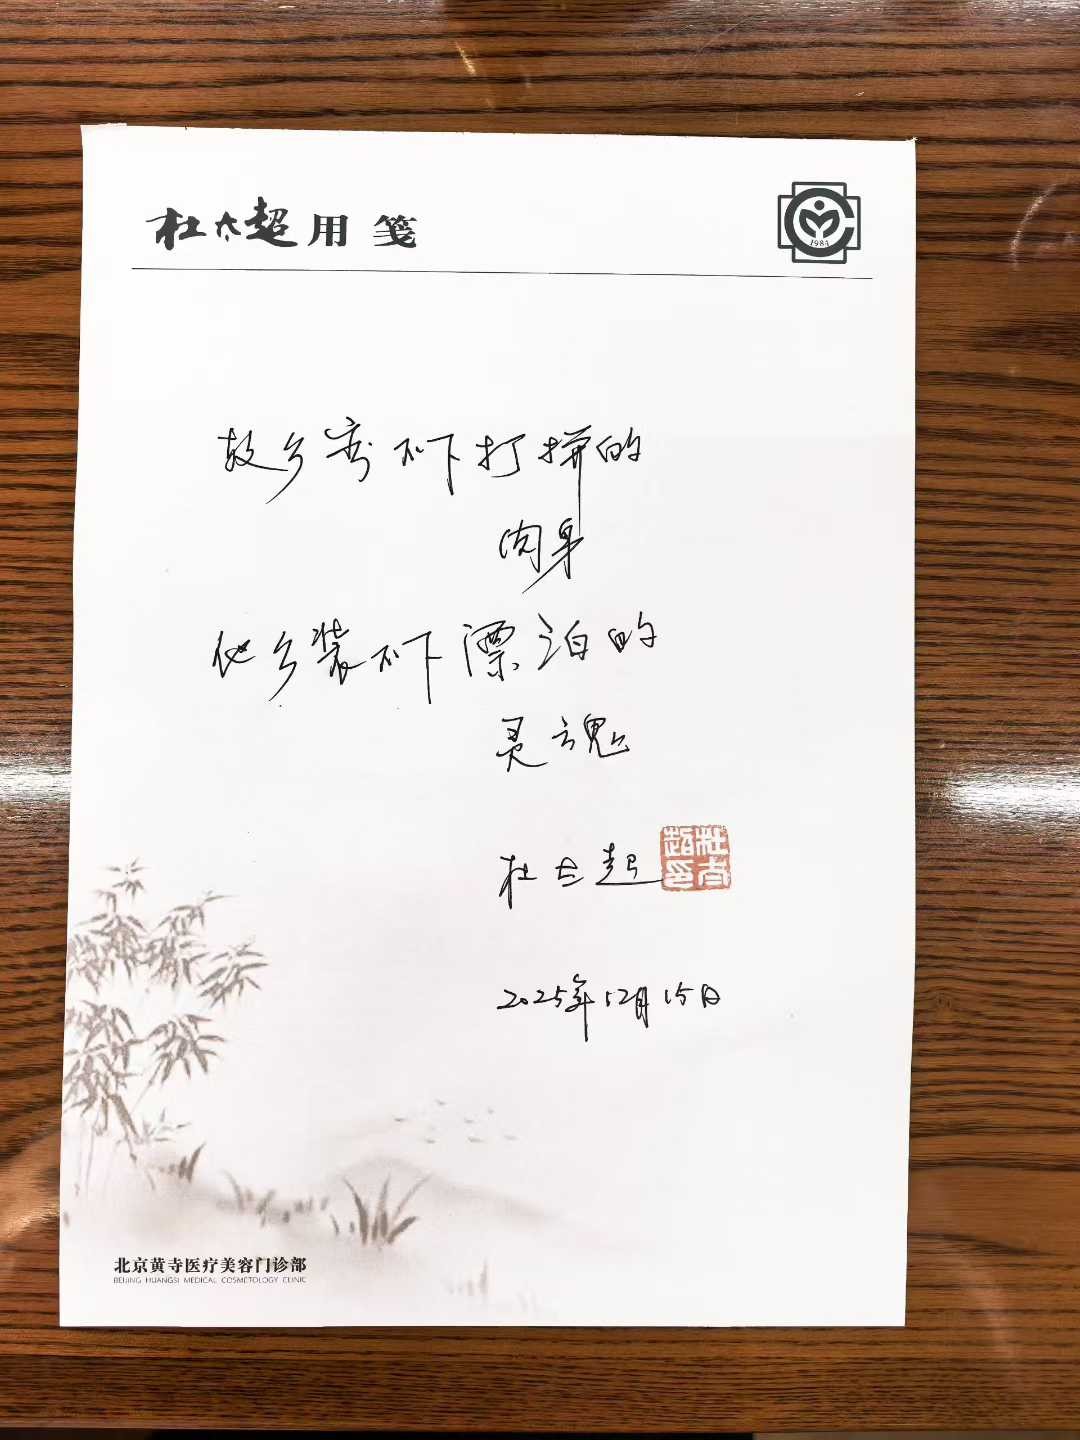 杜太超用笺
1984
故乡容不下打拼的
肉身
他乡装不下漂泊的
灵魂
杜太超
杜太超印
2025年12月15日
北京黄寺医疗美容门诊部
BEIJING HUANGSI MEDICAL COSMETOLOGY CLINIC